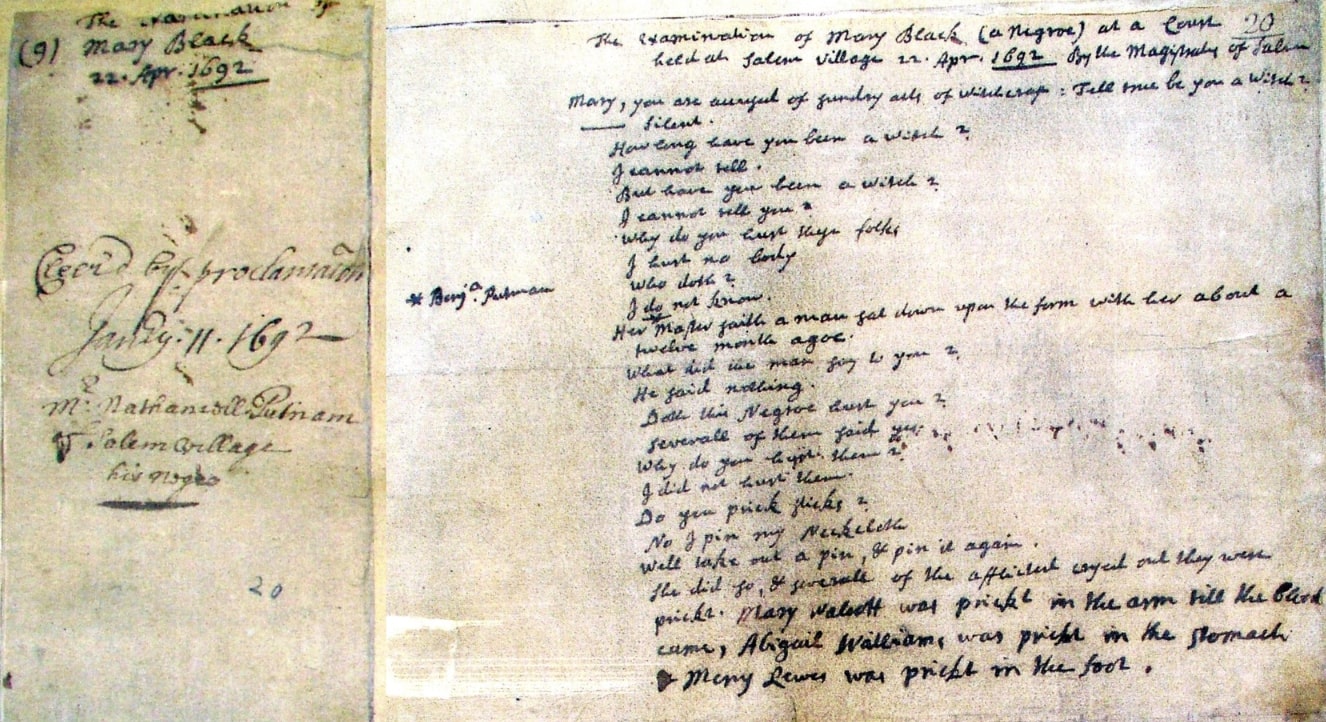 The Examination of
(9) Mary Black
22. Apr. 1692
Clear'd by proclamation
Jan'y. 11. 1692
Mr. Nathaneill Putnam
of Salem village
his negro
20
20
The Examination of Mary Black (a Negroe) at a Court
held at Salem Village 22. Apr. 1692 By the Magistrates of Salem
Mary, you are accused of sundry acts of witchcraft: Tell me be you a Witch?
—— Silent.
How long have you been a witch?
I cannot tell.
But have you been a witch?
I cannot tell you
Why do you hurt these folks
I hurt no body
Who doth?
I do not know.
* Benja. Putnam
Her * Master saith a man sat down upon the form with her about a
twelve month agoe.
What did the man say to you?
He said nothing.
Doth this Negroe hurt you?
Severall of them said yes.
Why do you hurt them?
I did not hurt them.
Do you prick sticks?
No I pin my Neckcloth
Well take out a pin, & pin it again.
She did so, & severall of the afflicted cryed out they were
prickt. Mary Walcott was prickt in the arm till the blood
came, Abigail Williams was prickt in the stomach
& Mercy Lewes was prickt in the foot.